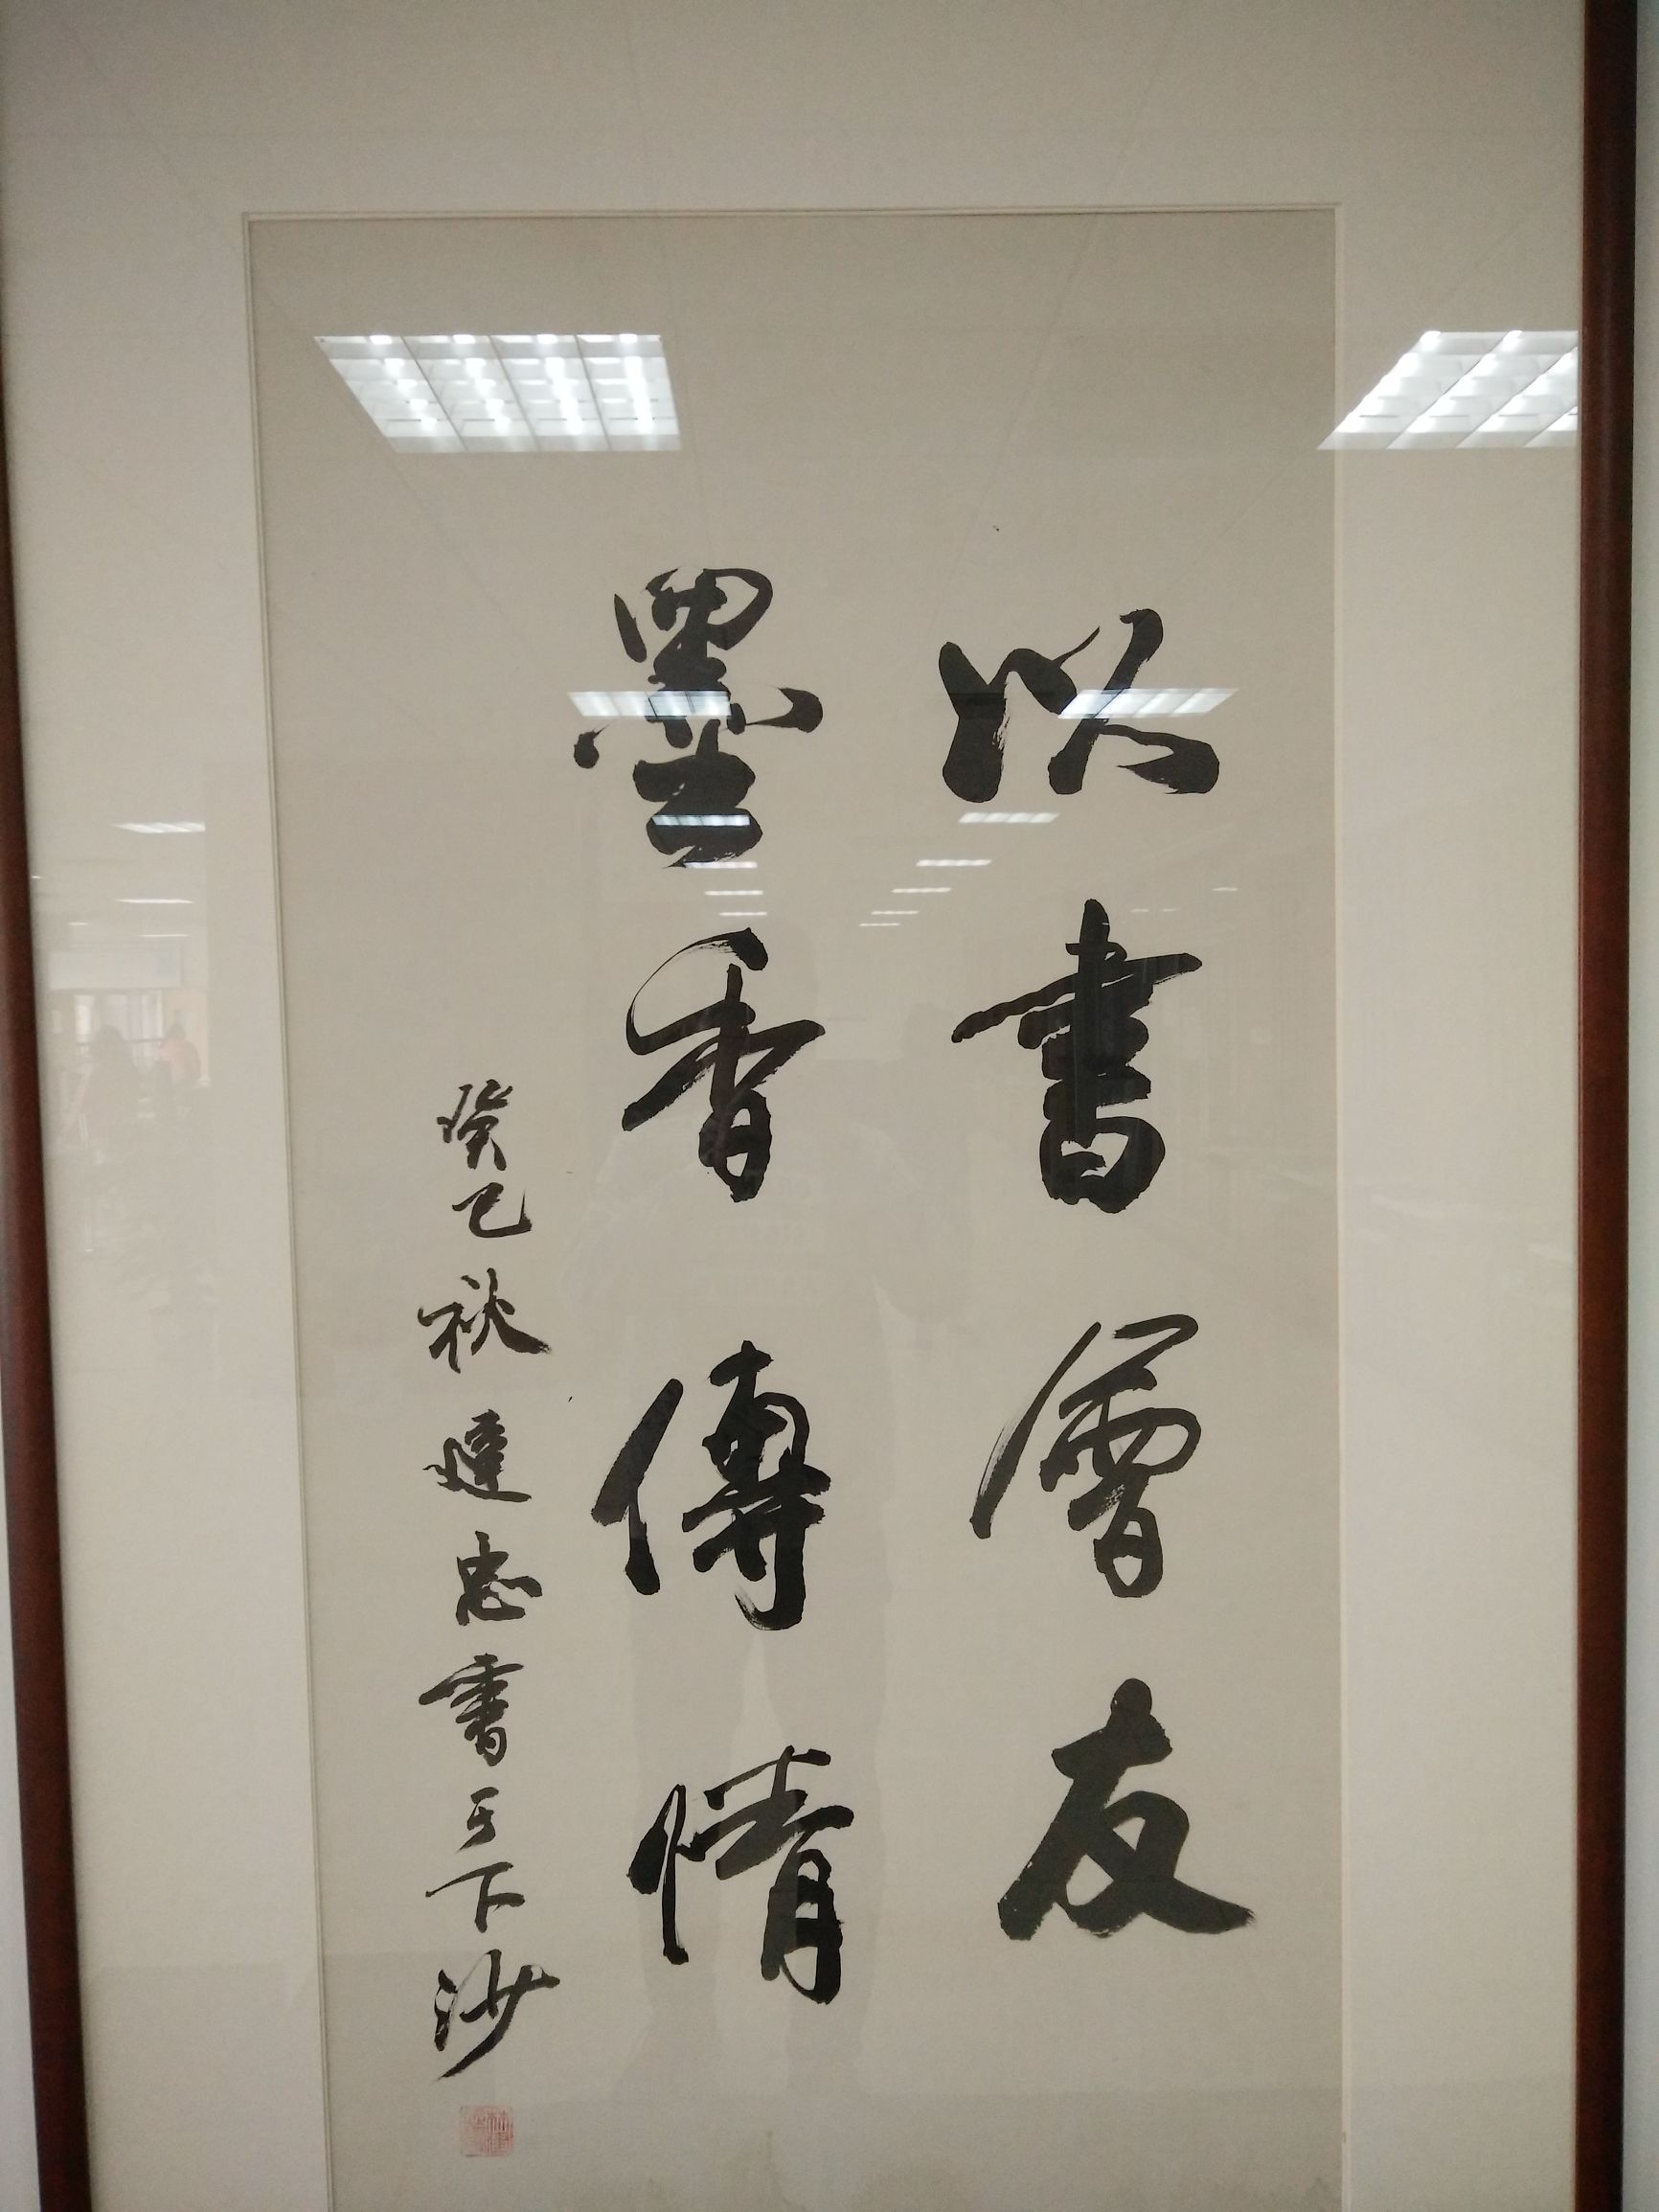 以書會友
墨香傳情
癸巳秋達忠書于下沙